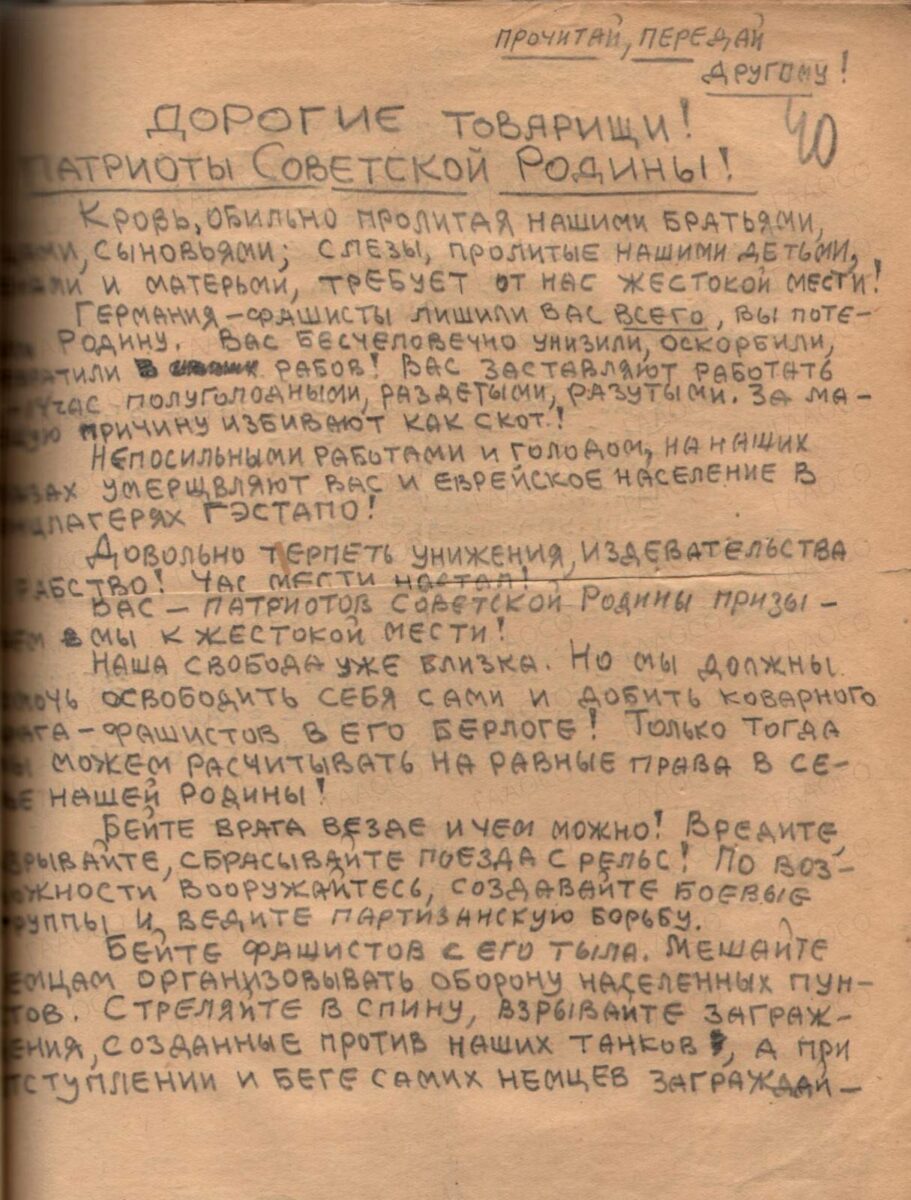 ПРОЧИТАЙ, ПЕРЕДАЙ
ДРУГОМУ!
40
ДОРОГИЕ ТОВАРИЩИ!
ПАТРИОТЫ СОВЕТСКОЙ РОДИНЫ!
КРОВЬ, ОБИЛЬНО ПРОЛИТАЯ НАШИМИ БРАТЬЯМИ,
СЫНОВЬЯМИ; СЛЕЗЫ, ПРОЛИТЫЕ НАШИМИ ДЕТЬМИ,
И МАТЕРЬМИ, ТРЕБУЕТ ОТ НАС ЖЕСТОКОЙ МЕСТИ!
ГЕРМАНИЯ-ФАШИСТЫ ЛИШИЛИ ВАС ВСЕГО, ВЫ ПОТЕ-
РОДИНУ. ВАС БЕСЧЕЛОВЕЧНО УНИЗИЛИ, ОСКОРБИЛИ,
РАТИЛИ В РАБОВ! ВАС ЗАСТАВЛЯЮТ РАБОТАТЬ
ЧАС ПОЛУГОЛОДНЫМИ, РАЗДЕТЫМИ, РАЗУТЫМИ. ЗА МА-
УЮ ПРИЧИНУ ИЗБИВАЮТ КАК СКОТ!
НЕПОСИЛЬНЫМИ РАБОТАМИ И ГОЛОДОМ, НА НАШИХ
АЗАХ УМЕРЩВЛЯЮТ ВАС И ЕВРЕЙСКОЕ НАСЕЛЕНИЕ В
ЦЛАГЕРЯХ ГЭСТАПО!
ДОВОЛЬНО ТЕРПЕТЬ УНИЖЕНИЯ, ИЗДЕВАТЕЛЬСТВА
РАБСТВО! ЧАС МЕСТИ НАСТАЛ!
ВАС – ПАТРИОТОВ СОВЕТСКОЙ РОДИНЫ ПРИЗЫ-
ЕМ МЫ К ЖЕСТОКОЙ МЕСТИ!
НАША СВОБОДА УЖЕ БЛИЗКА. НО МЫ ДОЛЖНЫ
МОЧЬ ОСВОБОДИТЬ СЕБЯ САМИ И ДОБИТЬ КОВАРНОГО
АГА-ФАШИСТОВ В ЕГО БЕРЛОГЕ! ТОЛЬКО ТОГДА
Ы МОЖЕМ РАСЧИТЫВАТЬ НА РАВНЫЕ ПРАВА В СЕ-
Е НАШЕЙ РОДИНЫ!
БЕЙТЕ ВРАГА ВЕЗДЕ И ЧЕМ МОЖНО! ВРЕДИТЕ,
ЗРЫВАЙТЕ, СБРАСЫВАЙТЕ ПОЕЗДА С РЕЛЬС! ПО ВОЗ-
ОЖНОСТИ ВООРУЖАЙТЕСЬ, СОЗДАВАЙТЕ БОЕВЫЕ
РУППЫ И ВЕДИТЕ ПАРТИЗАНСКУЮ БОРЬБУ.
БЕЙТЕ ФАШИСТОВ С ЕГО ТЫЛА. МЕШАЙТЕ
ЕМЦАМ ОРГАНИЗОВЫВАТЬ ОБОРОНУ НАСЕЛЕННЫХ ПУН-
ТОВ. СТРЕЛЯЙТЕ В СПИНУ, ВЗРЫВАЙТЕ ЗАГРАЖ-
ЕНИЯ, СОЗДАННЫЕ ПРОТИВ НАШИХ ТАНКОВ, А ПРИ
ТСТУПЛЕНИИ И БЕГЕ САМИХ НЕМЦЕВ ЗАГРАЖДАЙ-